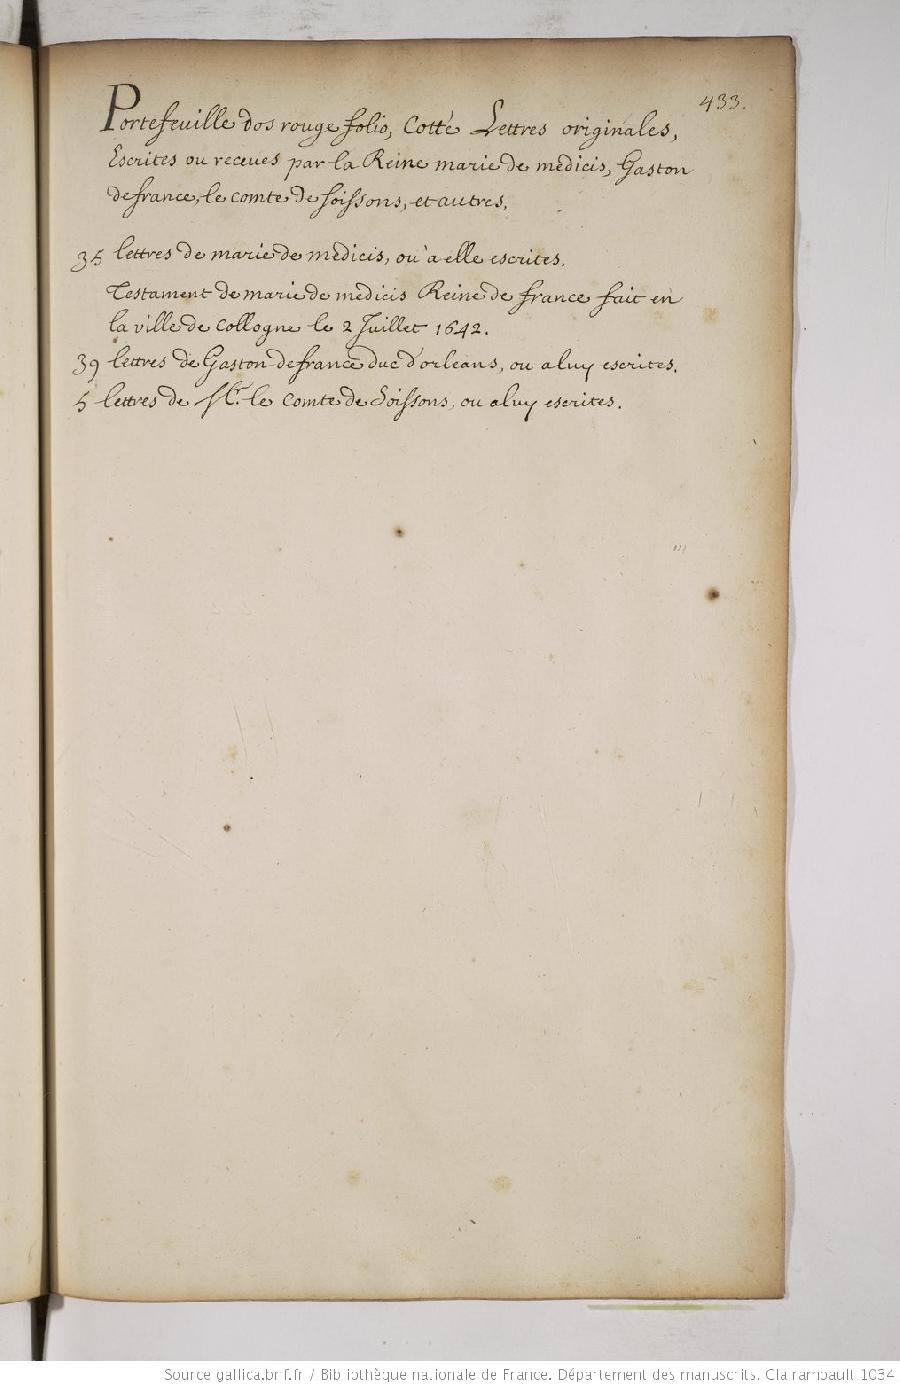 433.
Portefeuille dos rouge folio, Cotté Lettres originales,
Escrites ou receues par la Reine marie de medicis, Gaston
de france, le comte de Soissons, et autres.
35 lettres de marie de medicis, ou a elle escrites.
Testament de marie de medicis Reine de france fait en
la ville de Collogne le 2 Juillet 1642.
39 lettres de Gaston de france duc d'orleans, ou a luy escrites.
5 lettres de Mr. le Comte de Soissons, ou a luy escrites.
Source gallica.bnf.fr / Bibliothèque nationale de France. Département des manuscrits. Clairambault 1034